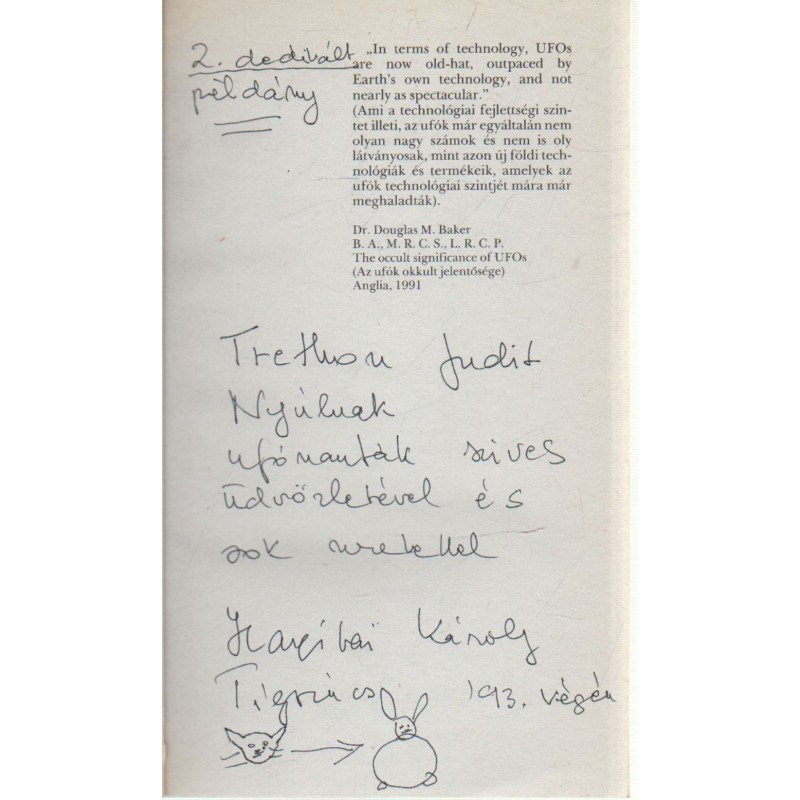 2. dedikált
példány
„In terms of technology, UFOs
are now old-hat, outpaced by
Earth's own technology, and not
nearly as spectacular."
(Ami a technológiai fejlettségi szin-
tet illeti, az ufók már egyáltalán nem
olyan nagy számok és nem is oly
látványosak, mint azon új földi tech-
nológiák és termékeik, amelyek az
ufók technológiai szintjét mára már
meghaladták).
Dr. Douglas M. Baker
B. A., M. R. C. S., L. R. C. P.
The occult significance of UFOs
(Az ufók okkult jelentősége)
Anglia, 1991
Trethon Judit
Nyúlnak
ufónauták szíves
üdvözletével és
sok szeretettel
Hargitai Károly
Tigrincs '93. végén